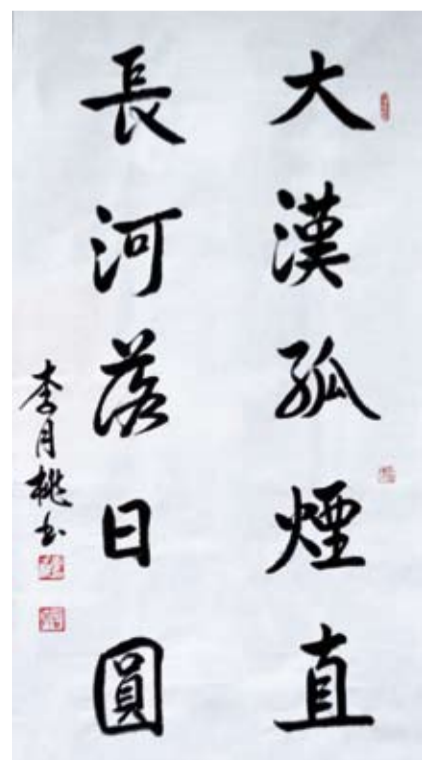 大漢孤煙直
長河落日圓
李月桃书